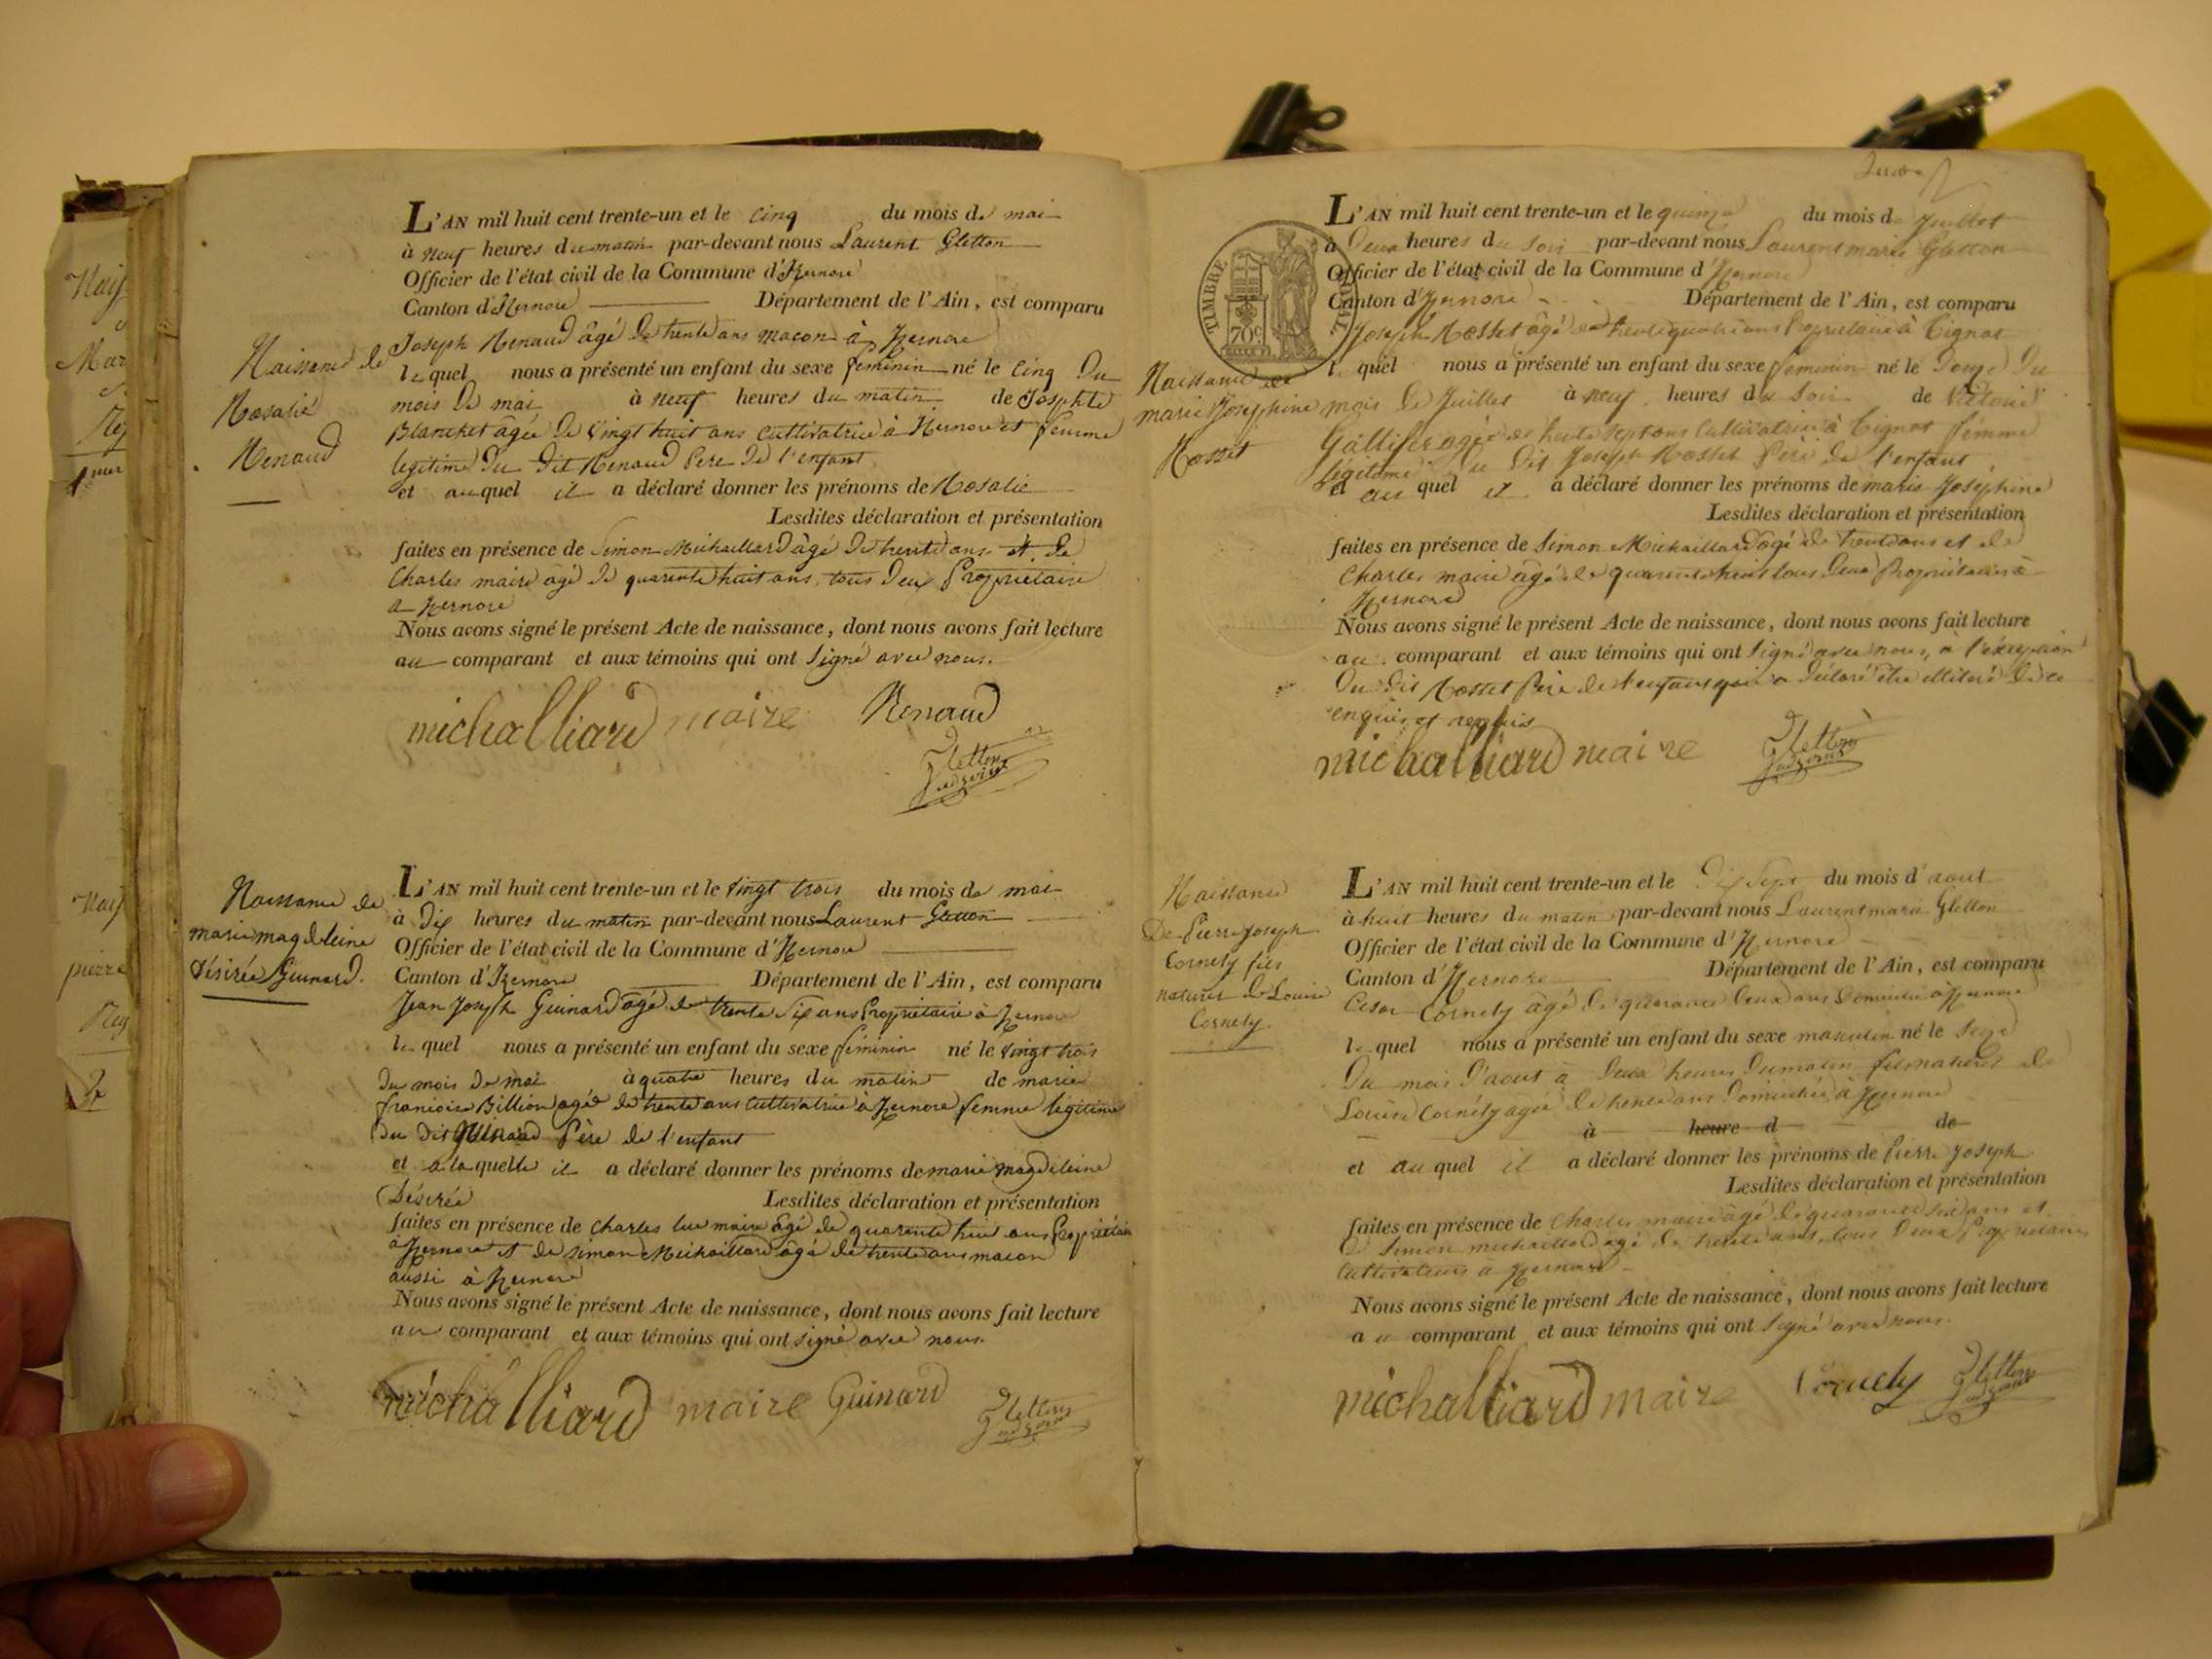 Naissance de
Rosalie
Renaud
L'AN mil huit cent trente-un et le cinq du mois de mai
à neuf heures du matin par-devant nous Laurent Gletton
Officier de l'état civil de la Commune d'Hernore
Canton d'Hernore Département de l'Ain, est comparu
Joseph Renaud âgé de trente ans macon à Hernore
lequel nous a présenté un enfant du sexe feminin né le cinq du
mois de mai à neuf heures du matin de Josephte
Blanchet agée de vingt huit ans cultivatrice à Hernore et femme
legitime du dit Renaud Pere de l'enfant
et auquel il a déclaré donner les prénoms de Rosalie
Lesdites déclaration et présentation
faites en présence de Simon Michaillard âgé de trente ans et de
Charles maire âgé de quarente huit ans, tous deux Propriétaire
a Hernore
Nous avons signé le présent Acte de naissance, dont nous avons fait lecture
au comparant et aux témoins qui ont signé avec nous.
michalliard maire Renaud
Gletton
adjoint
Naissance de
marie magdeleine
désirée Guinard.
L'AN mil huit cent trente-un et le vingt trois du mois de mai
à dix heures du matin par-devant nous Laurent Gletton
Officier de l'état civil de la Commune d'Hernore
Canton d'Hernore Département de l'Ain, est comparu
Jean Joseph Guinard âgé de trente six ans Propriétaire à Hernore
lequel nous a présenté un enfant du sexe féminin né le vingt trois
du mois de mai à quatre heures du matin de marie
francoise Billion agée de trente ans cultivatrice à Hernore femme légitime
du dit Guinard Père de l'enfant
et a laquelle il a déclaré donner les prénoms de marie magdeleine
Désirée Lesdites déclaration et présentation
faites en présence de Charles luc maire âgé de quarente huit ans Propriétaire
à Hernore et de simon Michaillard âgé de trente ans macon
aussi à Hernore
Nous avons signé le présent Acte de naissance, dont nous avons fait lecture
au comparant et aux témoins qui ont signé avec nous.
michalliard maire Guinard Gletton
adjoint
TIMBRE
70c
Naissance de
marie Josephine
Rosset
L'AN mil huit cent trente-un et le quinze du mois de Juillet
à deux heures du soir par-devant nous Laurent marie Gletton
Officier de l'état civil de la Commune d'Hernore
Canton d'Hernore Département de l'Ain, est comparu
Joseph Rosset âgé de trente quatre ans Propriétaire à Tignat
lequel nous a présenté un enfant du sexe féminin né le douze du
mois de Juillet à neuf heures du soir de Victoire
Gallifer agée de trente sept ans cultivatrice à Tignat femme
légitime du dit Joseph Rosset Père de l'enfant
et auquel il a déclaré donner les prénoms de marie Joséphine
Lesdites déclaration et présentation
faites en présence de Simon Michaillard âgé de trente ans et de
Charles maire âgé de quarente huit tous deux Propriétaires à
Hernore
Nous avons signé le présent Acte de naissance, dont nous avons fait lecture
au comparant et aux témoins qui ont signé avec nous, à l'exeption
du dit Rosset Père de l'enfant qui a déclaré être illitéré de ce
enquis et requis
michalliard maire Gletton
adjoint
Naissance
De Pierre Joseph
Cornety fils
naturel de Louise
Cornety.
L'AN mil huit cent trente-un et le Dix Sept du mois d'aout
à huit heures du matin par-devant nous Laurent marie Gletton
Officier de l'état civil de la Commune d'Hernore
Canton d'Hernore Département de l'Ain, est comparu
César Cornety agé de quarante deux ans domicilié à Hernore
lequel nous a présenté un enfant du sexe masculin né le seize
du mois d'aout à deux heures du matin fils naturel de
Louise Cornéty agée de trente ans domiciliée à Hernore
à heure d de
et auquel il a déclaré donner les prénoms de Pierre Joseph
Lesdites déclaration et présentation
faites en présence de Charles maire âgé de quarante six ans et
de Simon michaillard agé de trente ans, tous deux Propriétaires
cultivateurs à Hernore
Nous avons signé le présent Acte de naissance, dont nous avons fait lecture
au comparant et aux témoins qui ont signé avec nous.
michalliard maire Cornety Gletton
adjoint